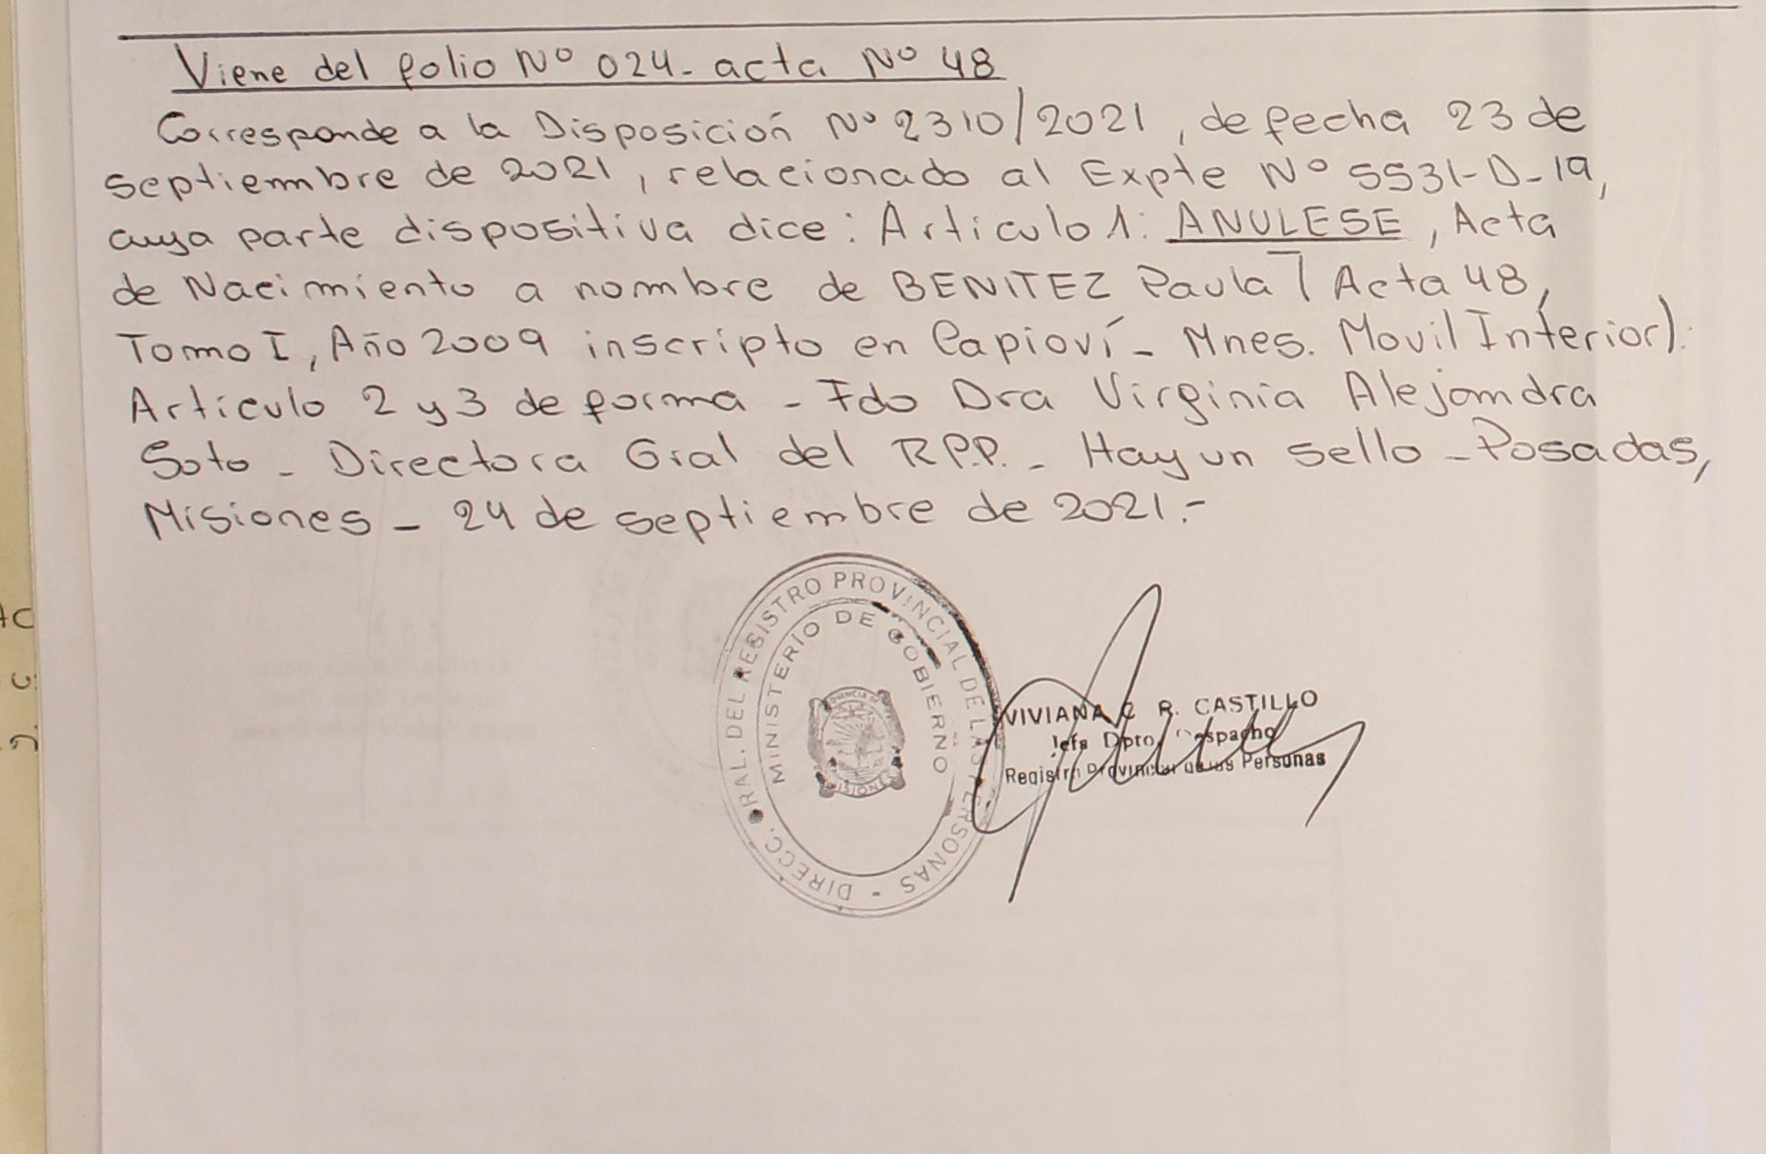 Viene del folio Nº 024- acta Nº 48
Corresponde a la Disposición Nº 2310/2021, de fecha 23 de
septiembre de 2021, relacionado al Expte Nº 5531-D-19,
cuya parte dispositiva dice: Articulo 1: ANULESE, Acta
de Nacimiento a nombre de BENITEZ Paula Acta 48,
Tomo I, Año 2009 inscripto en Capioví - Mnes. Movil Interior).
Articulo 2 y 3 de forma - Fdo Dra Virginia Alejandra
Soto - Directora Gral del R.P.P. - Hay un sello - Posadas,
Misiones - 24 de septiembre de 2021.-
DIRECC. GRAL. DEL REGISTRO PROVINCIAL DE LAS PERSONAS -
MINISTERIO DE GOBIERNO
PROVINCIA DE
MISIONES
VIVIANA R. CASTILLO
Jefa Dpto. Despacho
Registro Provincial de las Personas